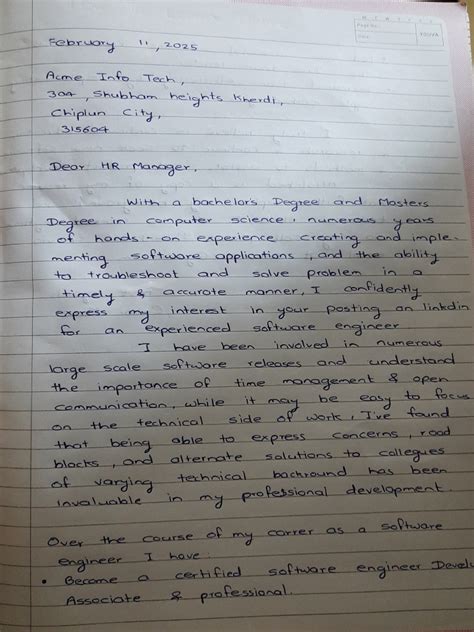 February 11, 2025
Acme Info Tech,
304, Shubham heights Kherdi,
Chiplun City,
315604
Dear HR Manager,
With a bachelor's Degree and Masters
Degree in computer science, numerous years
of hands-on experience creating and imple-
menting software applications, and the ability
to troubleshoot and solve problem in a
timely & accurate manner, I confidently
express my interest in your posting on linkdin
for an experienced software engineer.
I have been involved in numerous
large scale software releases and understand
the importance of time management & open
communication, while it may be easy to focus
on the technical side of work, I've found
that being able to express concerns, road
blocks, and alternate solutions to collegues
of varying technical backround has been
invaluable in my professional development.
Over the course of my carrer as a software
engineer I have:
• Become a certified software engineer Develo
Associate & professional.